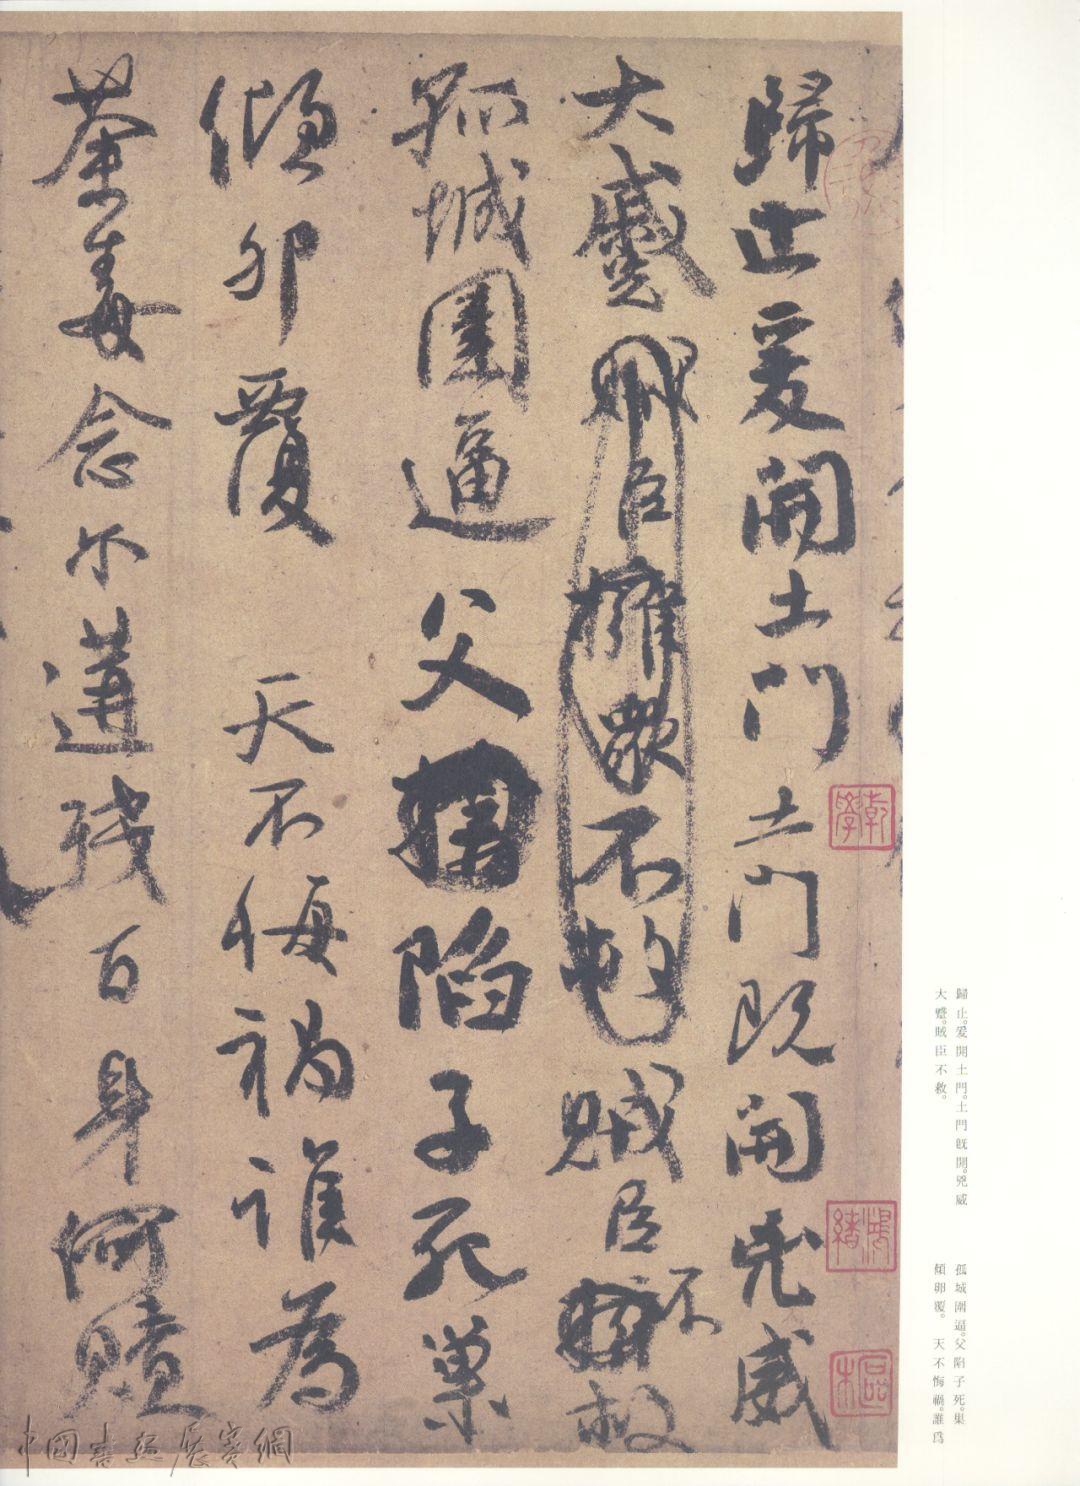 歸止爰開土門土門既開兇威
大蹙賊臣擁衆不救賊臣不救
孤城圍逼父陷子死巢
傾卵覆 天不悔禍誰為
荼毒念尔遘残百身何贖
歸止。爰開土門。土門既開。兇威
大蹙。賊臣不救。
孤城圍逼。父陷子死。巢
傾卵覆。 天不悔禍。誰爲
中國書法展賽網